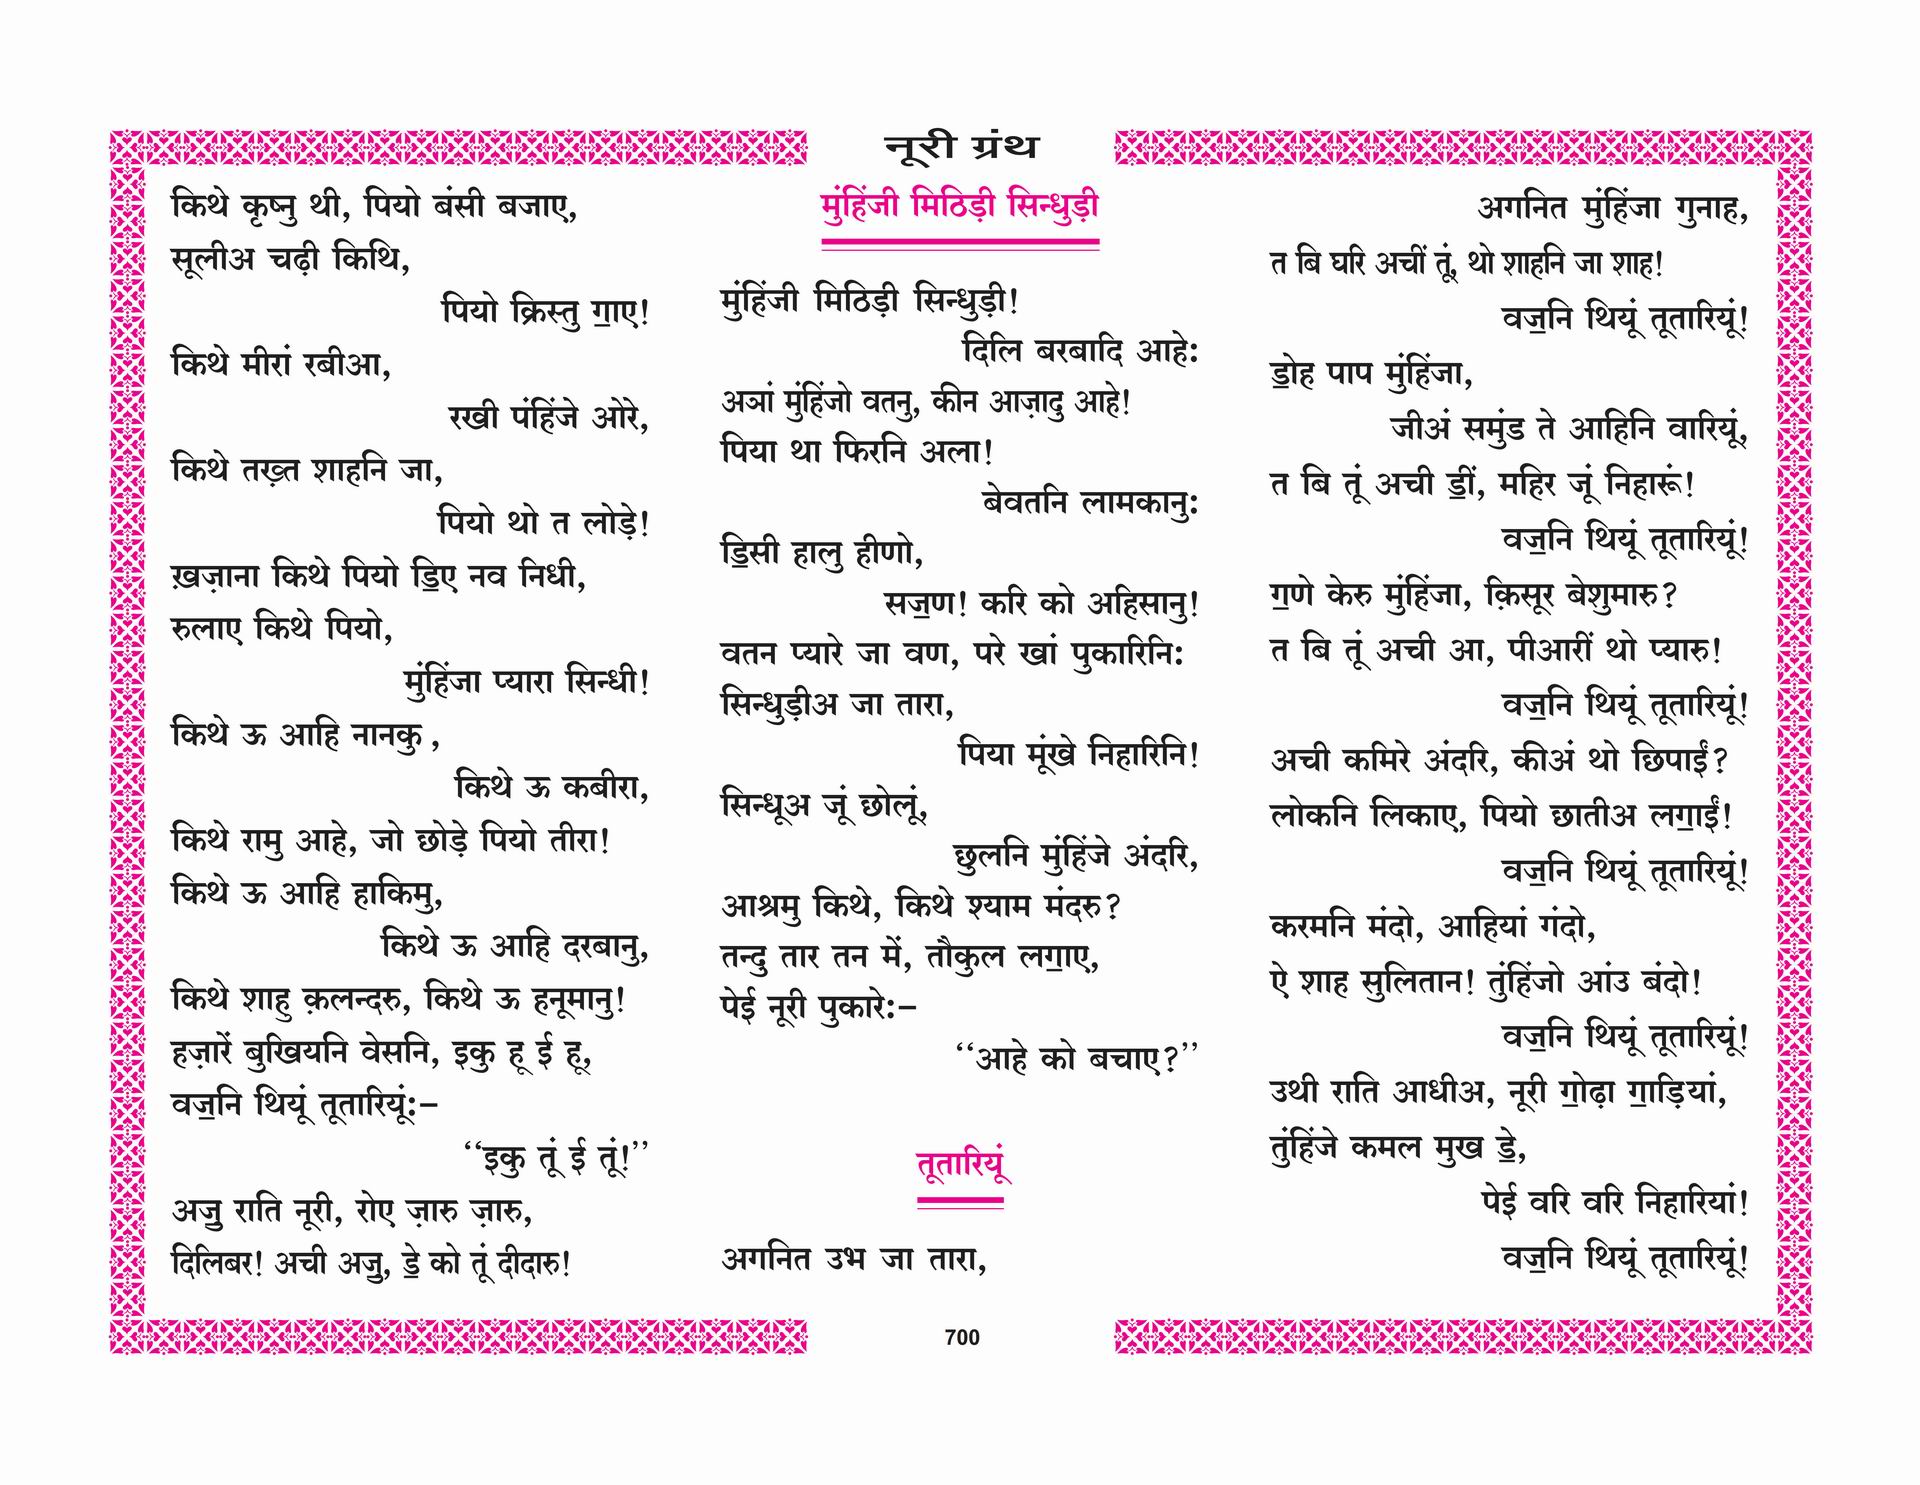 नूरी ग्रंथ
किथे कृष्नु थी, पियो बंसी बजाए,
सूलीअ चढ़ी किथि,
पियो क्रिस्तु ॻाए!
किथे मीरां रबीआ,
रखी पंहिंजे ओरे,
किथे तख़्त शाहनि जा,
पियो थो त लोड़े!
ख़ज़ाना किथे पियो ॾिए नव निधी,
रुलाए किथे पियो,
मुंहिंजा प्यारा सिन्धी!
किथे ऊ आहि नानकु ,
किथे ऊ कबीरा,
किथे रामु आहे, जो छोड़े पियो तीरा!
किथे ऊ आहि हाकिमु,
किथे ऊ आहि दरबानु,
किथे शाहु क़लन्दरु, किथे ऊ हनूमानु!
हज़ारें बुखियनि वेसनि, इकु हू ई हू,
वॼनि थियूं तूतारियूं:–
‘‘इकु तूं ई तूं!’’
अॼु राति नूरी, रोए ज़ारु ज़ारु,
दिलिबर! अची अॼु, ॾे को तूं दीदारु!
मुंहिंजी मिठिड़ी सिन्धुड़ी
मुंहिंजी मिठिड़ी सिन्धुड़ी!
दिलि बरबादि आहे:
अञां मुंहिंजो वतनु, कीन आज़ादु आहे!
पिया था फिरनि अला!
बेवतनि लामकानु:
ॾिसी हालु हीणो,
सॼण! करि को अहिसानु!
वतन प्यारे जा वण, परे खां पुकारिनि:
सिन्धुड़ीअ जा तारा,
पिया मूंखे निहारिनि!
सिन्धूअ जूं छोलूं,
छुलनि मुंहिंजे अंदरि,
आश्रमु किथे, किथे श्याम मंदरु?
तन्दु तार तन में, तौकुल लॻाए,
पेई नूरी पुकारे:–
‘‘आहे को बचाए?’’
तूतारियूं
अगनित उभ जा तारा,
अगनित मुंहिंजा गुनाह,
त बि घरि अचीं तूं, थो शाहनि जा शाह!
वॼनि थियूं तूतारियूं!
ॾोह पाप मुंहिंजा,
जीअं समुंड ते आहिनि वारियूं,
त बि तूं अची ॾीं, महिर जूं निहारूं!
वॼनि थियूं तूतारियूं!
ॻणे केरु मुंहिंजा, क़िसूर बेशुमारु?
त बि तूं अची आ, पीआरीं थो प्यारु!
वॼनि थियूं तूतारियूं!
अची कमिरे अंदरि, कीअं थो छिपाईं?
लोकनि लिकाए, पियो छातीअ लॻाईं!
वॼनि थियूं तूतारियूं!
करमनि मंदो, आहियां गंदो,
ऐ शाह सुलितान! तुंहिंजो आंउ बंदो!
वॼनि थियूं तूतारियूं!
उथी राति आधीअ, नूरी ॻोढ़ा ॻाड़ियां,
तुंहिंजे कमल मुख ॾे,
पेई वरि वरि निहारियां!
वॼनि थियूं तूतारियूं!
700